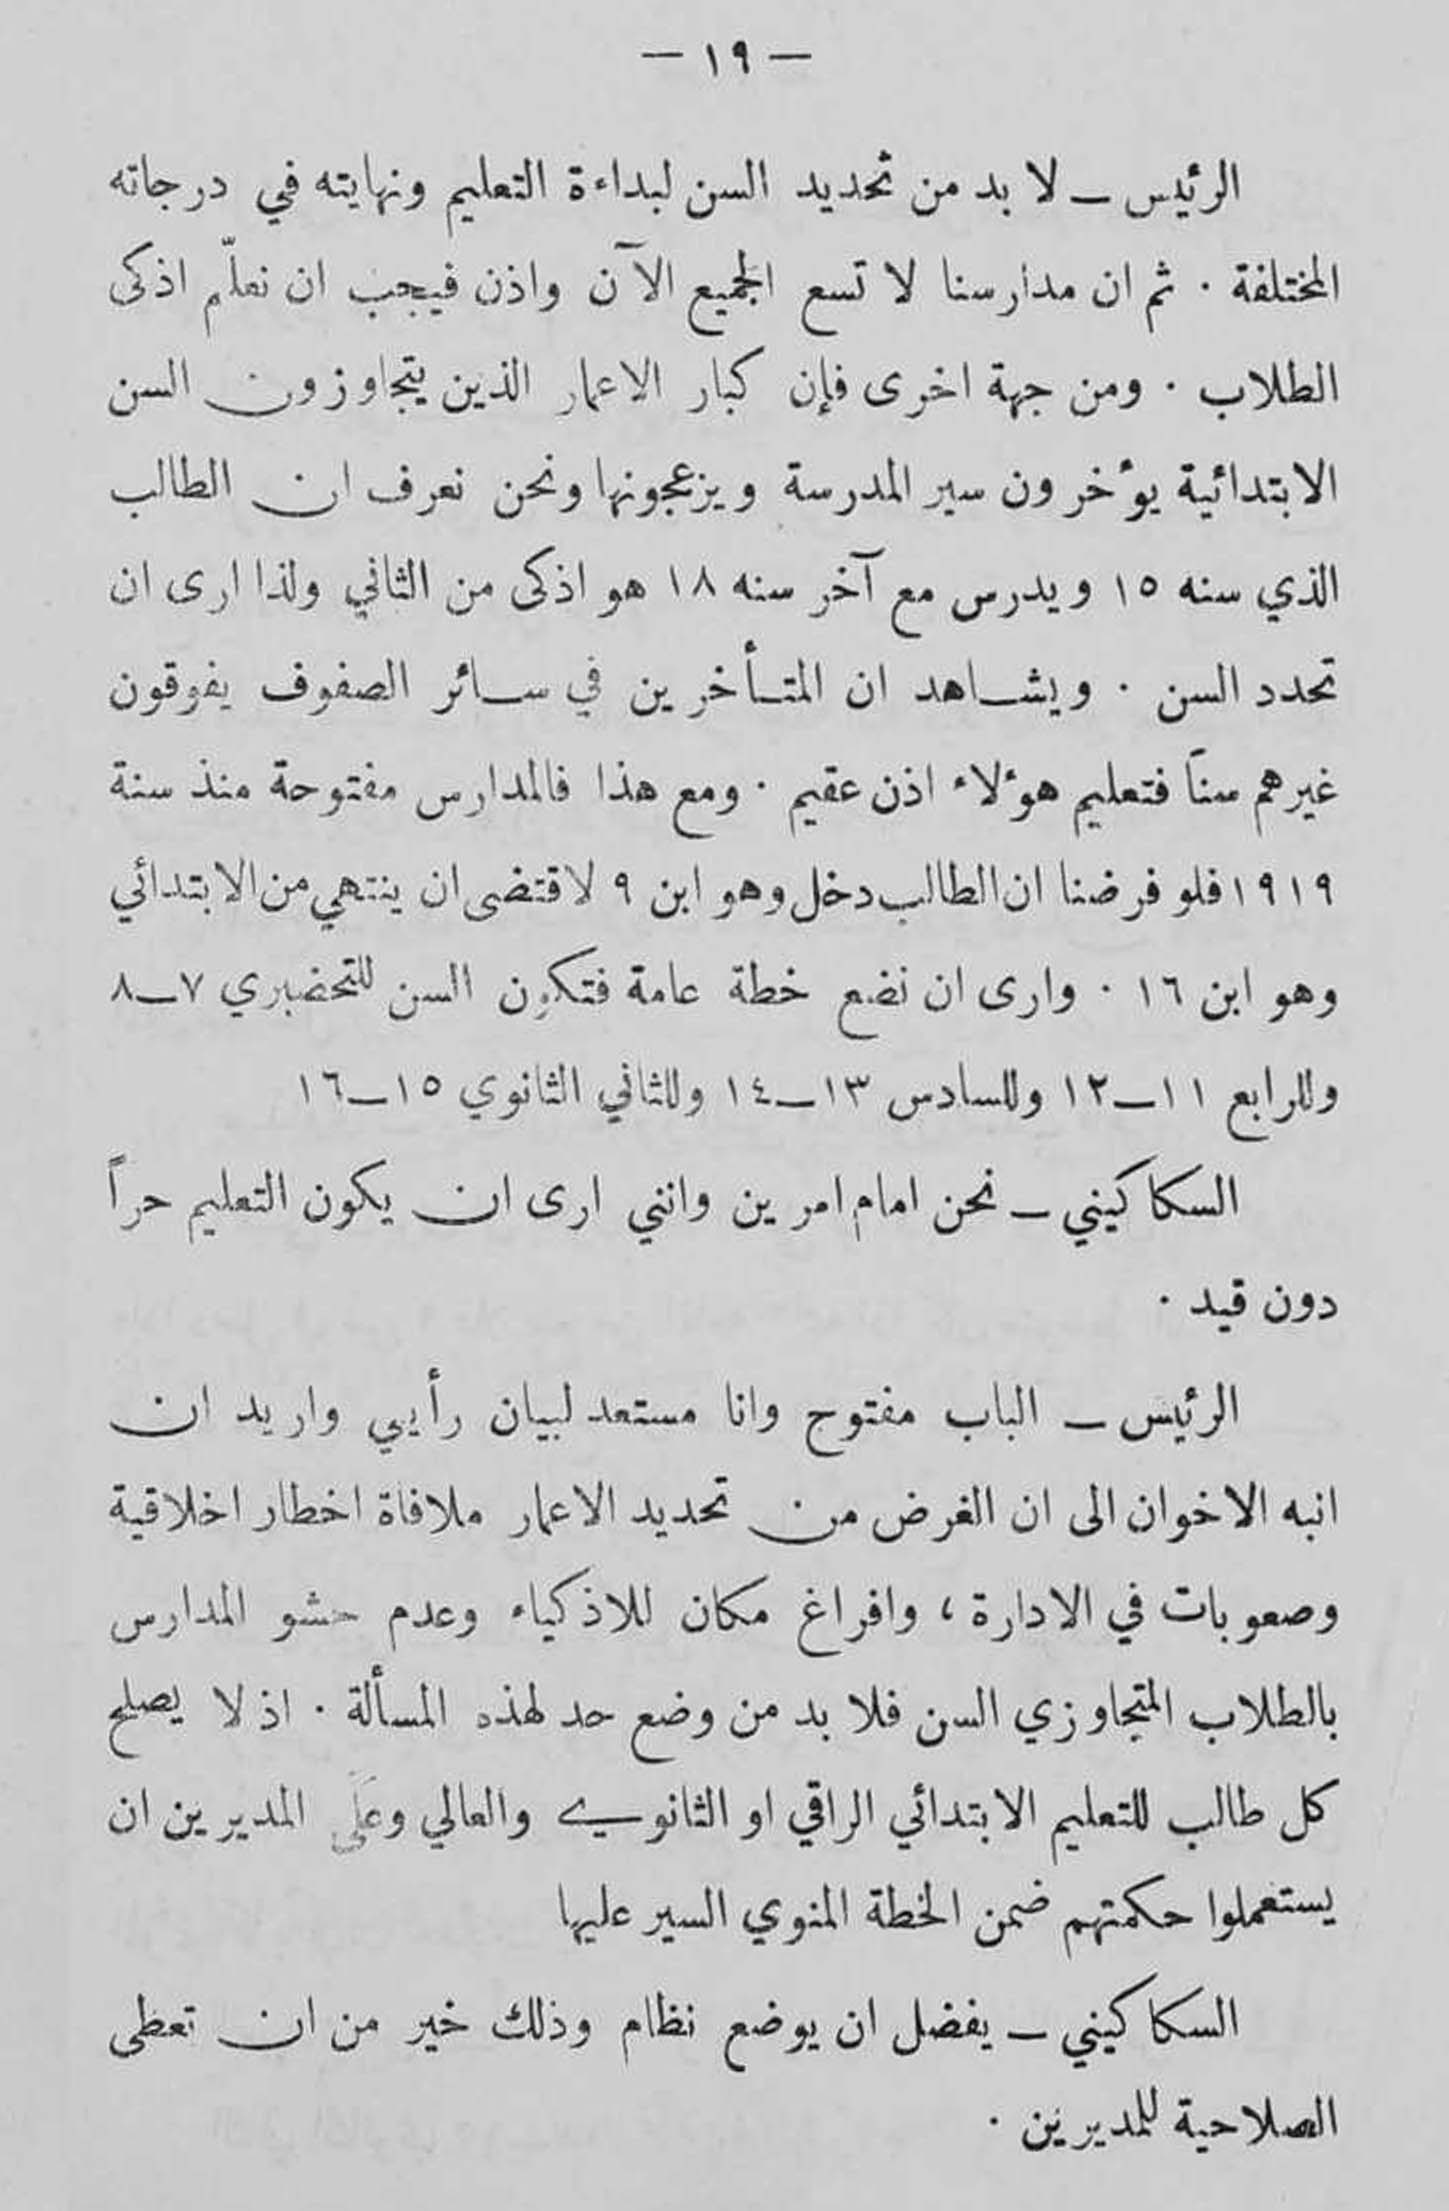 — ١٩ —
الرئيس – لا بد من تحديد السن لبداءة التعليم ونهايته في درجاته
المختلفة . ثم ان مدارسنا لا تسع الجميع الآن واذن فيجب ان نعلّم اذكى
الطلاب . ومن جهة اخرى فإن كبار الاعمار الذين يتجاوزون السن
الابتدائية يؤخرون سير المدرسة ويزعجونها ونحن نعرف ان الطالب
الذي سنه ١٥ ويدرس مع آخر سنه ١٨ هو اذكى من الثاني ولذا ارى ان
تحدد السن . ويشاهد ان المتأخرين في سائر الصفوف يفوقون
غيرهم سنًا فتعليم هؤلاء اذن عقيم . ومع هذا فالمدارس مفتوحة منذ سنة
١٩١٩ فلو فرضنا ان الطالب دخل وهو ابن ٩ لاقتضى ان ينتهي من الابتدائي
وهو ابن ١٦ . وارى ان نضع خطة عامة فتكون السن للتحضيري ٧–٨
وللرابع ١١–١٢ وللسادس ١٣–١٤ وللثاني الثانوي ١٥–١٦
السكاكيني – نحن امام امرين وانني ارى ان يكون التعليم حراً
دون قيد .
الرئيس – الباب مفتوح وانا مستعد لبيان رأيي واريد ان
انبه الاخوان الى ان الغرض من تحديد الاعمار ملافاة اخطار اخلاقية
وصعوبات في الادارة ، وافراغ مكان للاذكياء وعدم حشو المدارس
بالطلاب المتجاوزي السن فلا بد من وضع حد لهذه المسألة . اذ لا يصلح
كل طالب للتعليم الابتدائي الراقي او الثانوي والعالي وعَلَى المديرين ان
يستعملوا حكمتهم ضمن الخطة المنوي السير عليها
السكاكيني – يفضل ان يوضع نظام وذلك خير من ان تعطى
الصلاحية للمديرين .